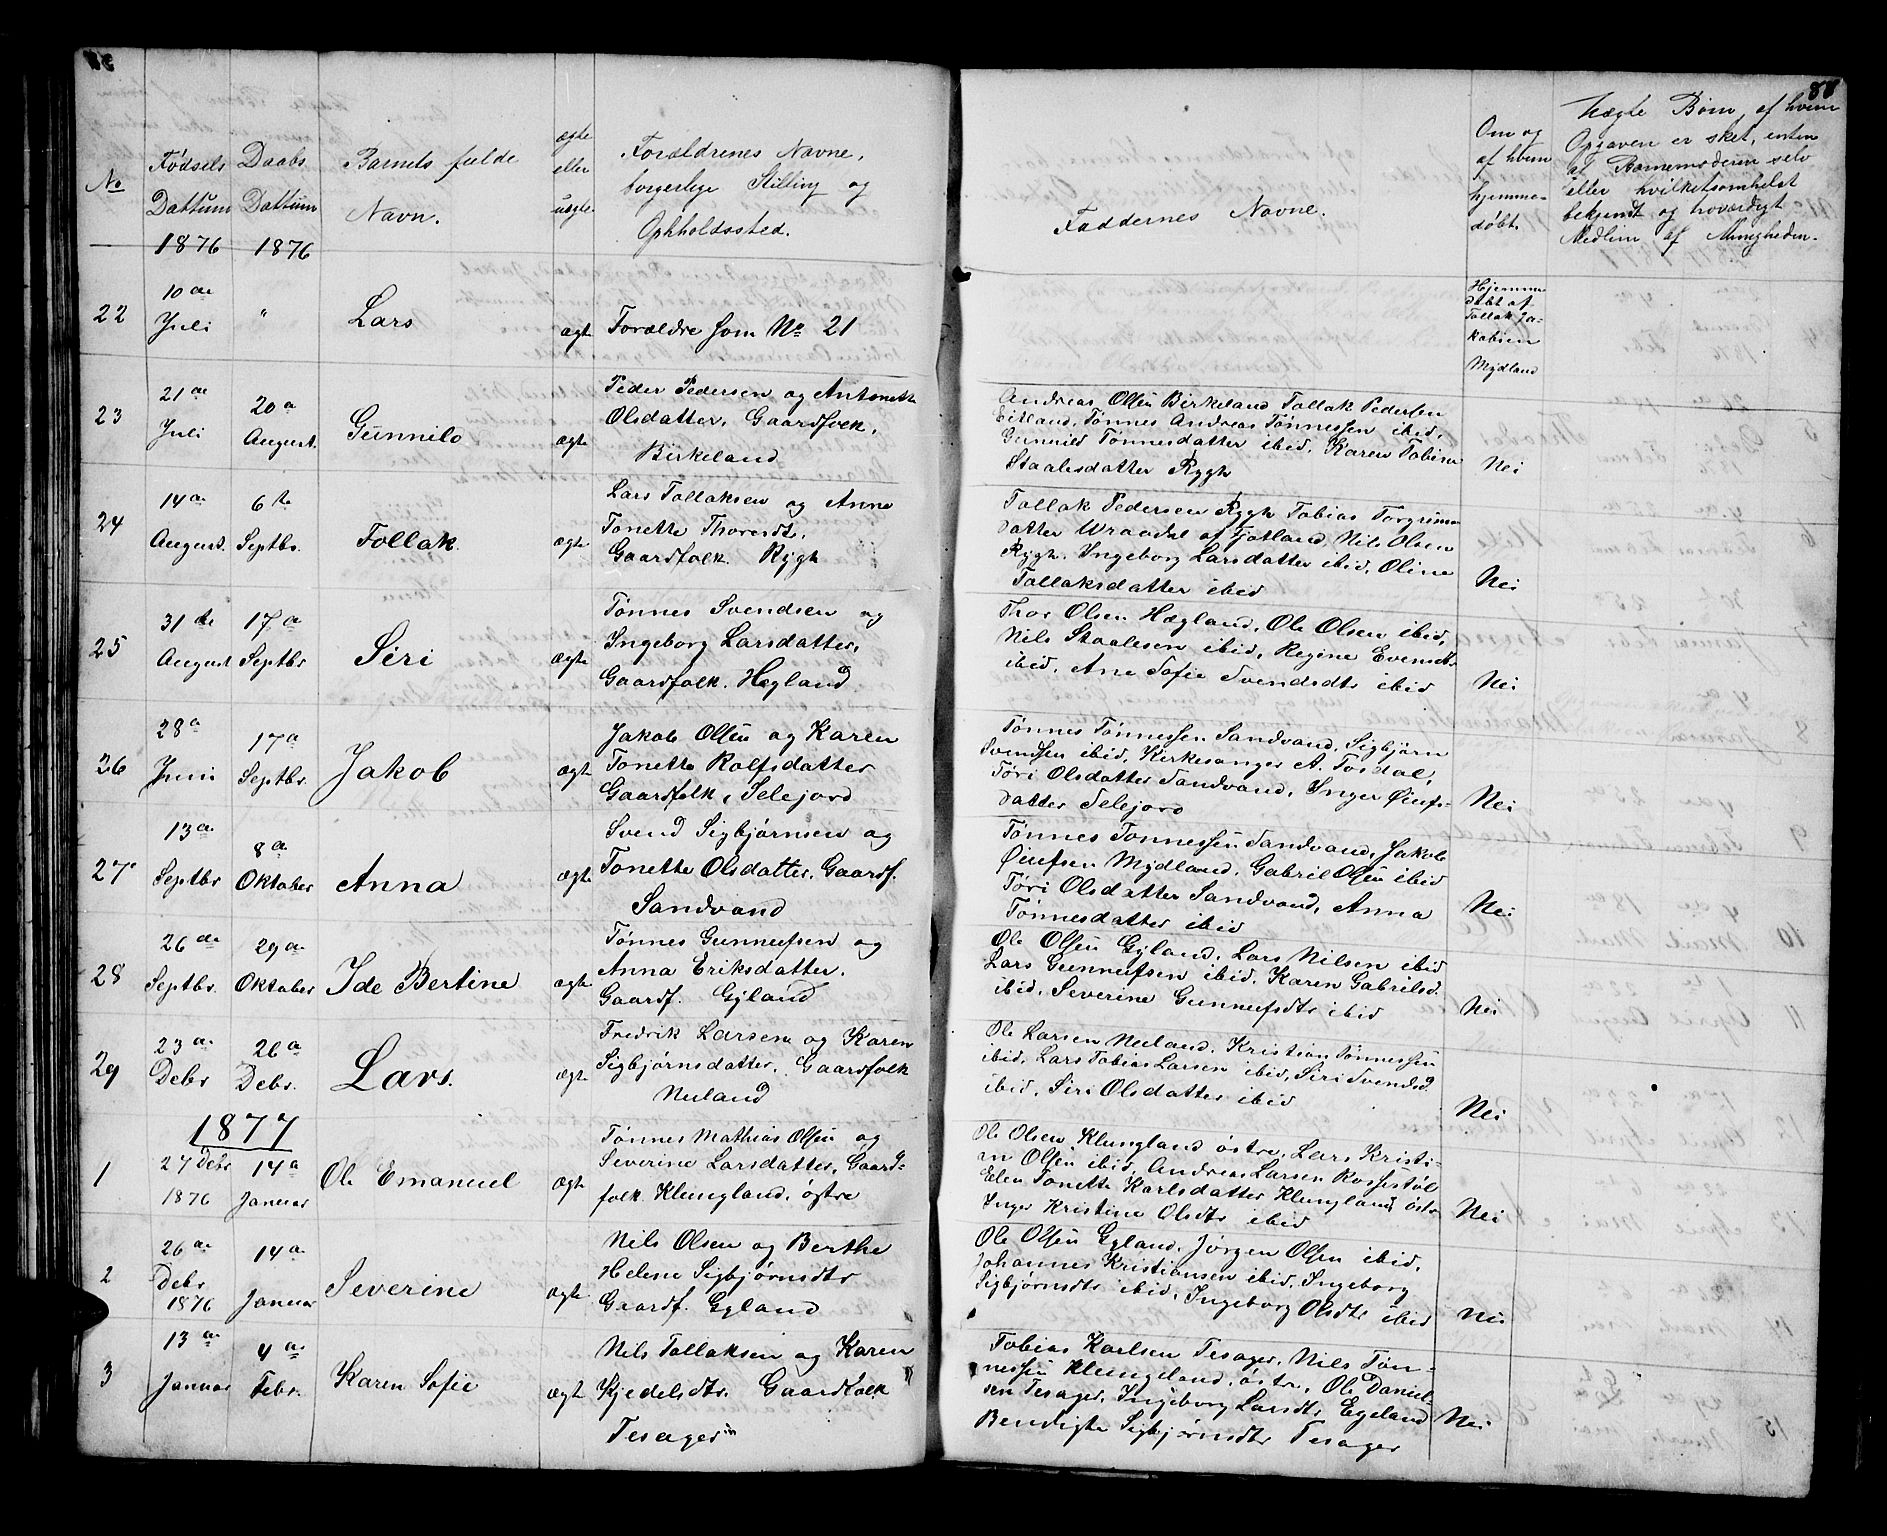 88
No
Fødsels
Dattum
1876
Daabs
Dattum
1876
Barnets fulde
Navn.
ægte
eller
uægte
Forældrenes Navne,
borgerlige Stilling og
Ophholdssted.
Faddernes Navne.
Om og
af hvem
hjemme-
døbt.
Uægte Børn, af hvem
Opgaven er sket, enten
af Barnemoderen selv
eller hvilketsomhelst
bekjendt og troværdigt
Medlem af Menigheden.
22
10 de
Juli
"
Lars
ægte
Forældre som No 21
Hjemme
døbt af
Tollak Ja-
kobsen
Mydland
23
21 de
Juli
20 a
August.
Gunnild
ægte
Peder Pedersen og Antonette
Olsdatter, Gaardfolk,
Birkeland
Andreas Olsen Birkeland Tollak Pedersen
Eitland, Tønnes Andreas Tønnessen ibid,
Gunnild Tønnesdatter ibid, Karen Tobine
Staalesdatter Rygh
Nei
24
14 a
August.
6 te
Septbr.
Tollak.
ægte
Lars Tollaksen og Anne
Tonette Thorsdt,
Gaardfolk. Rygh
Tollak Pedersen Rygh Tobias Torgrims
datter Wraadal af Fjotland, Nils Olsen
Rygh, Ingeborg Larsdatter ibid, Oline
Tollaksdatter ibid
Nei
25
31 de
August
17 a
Septbr
Siri
ægte
Tønnes Svendsen og
Ingeborg Larsdatter,
Gaardfolk. Hægland
Thor Olsen Hægland, Ole Olsen ibid,
Nils Staalesen ibid, Regine Evensdtr
ibid, Ane Sofie Svendsdtr ibid
Nei
26
28 a
Juni
17 a
Septbr.
Jakob
ægte
Jakob Olsen og Karen
Tonette Rolfsdatter
Gaardfolk, Selejord
Tønnes Tønnessen Sandvand, Sigbjørn
Svendsen ibid, Kirkesanger A. Tosdal,
Tøri Olsdatter Sandvand, Inger Øiufs-
datter Selejord
Nei
27
13 a
Septbr
8 a
Oktober
Anna
ægte
Svend Sigbjørnsen og
Tonette Olsdatter, Gaardf.
Sandvand
Tønnes Tønnessen Sandvand, Jakob
Øiufsen Mydland, Gabriel Olsen ibid
Tøri Olsdatter Sandvand, Anna
Tønnesdatter ibid
Nei
28
26 de
Septbr.
29 a
Oktober
Ide Bertine
ægte
Tønnes Gunnufsen og
Anna Eriksdatter.
Gaardf. Gyland
Ole Olsen Gyland, Lars Nilsen ibid
Lars Gunnufsen ibid, Karen Gabrilsd.
ibid, Severine Gunnufsdtr ibid
Nei
29
23 a
Debr
26 a
Debr.
Lars.
ægte
Fredrik Larsen og Karen
Sigbjørnsdatter, Gaardfolk
Nuland
Ole Larsen Nuland, Kristian Tønnessen
ibid, Lars Tobias Larsen ibid, Siri Svendsd
ibid, Siri Olsdatter ibid
Nei
1877
1
27 Debr
1876
14 a
Januar
Ole Emanuel
ægte
Tønnes Mathias Olsen og
Severine Larsdatter, Gaard-
folk Klungland, østre
Ole Olsen Klungland østre, Lars Kristi-
an Olsen ibid, Andreas Larsen Rossestøl
Elen Tonette Karlsdatter Klungland østre
Inger Kristine Olsdtr ibid
Nei
2
26 a
Debr
1876
14 a
Januar
Severine
ægte
Nils Olsen og Berthe
Helene Sigbjørnsdtr
Gaardf. Egland
Ole Olsen Egland, Jørgen Olsen ibid,
Johannes Kristiansen ibid, Ingeborg
Sigbjørnsdtr ibid, Ingeborg Olsdtr ibid
Nei
3
13 a
Januar
4 a
Febr.
Karen Sofie
ægte
Nils Tollaksen og Karen
Kjedelsdtr. Gaardfolk
Tesager
Tobias Karlsen Tesager, Nils Tøn-
nessen Klungeland, østre, Ole Daniel-
sen Tesager, Ingeborg Larsdtr Egeland
Bendigte Sigbjørnsdtr Tesager
Nei